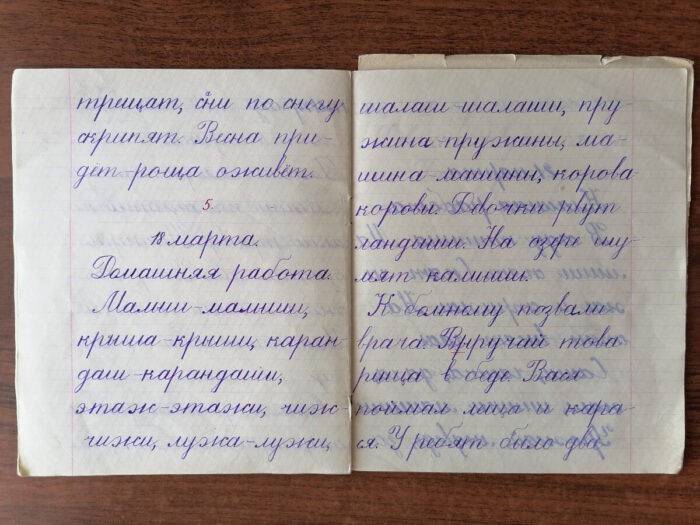 трещат, они по снегу
скрипят. Весна при-
дёт-роща оживёт.
5.
18 марта.
Домашняя работа.
Малыш-малыши,
крыша-крыши, каран-
даш-карандаши,
этаж-этажи, чиж-
чижи, лужа-лужи,
шалаш-шалаши, пру-
жина-пружины, ма-
шина-машины, корова-
коровы. Девочки рвут
ландыши. На озере шу-
мят камыши.
К больному позвали
врача. Выручай това-
рища в беде. Вася
поймал леща и кара-
ся. У ребят было два